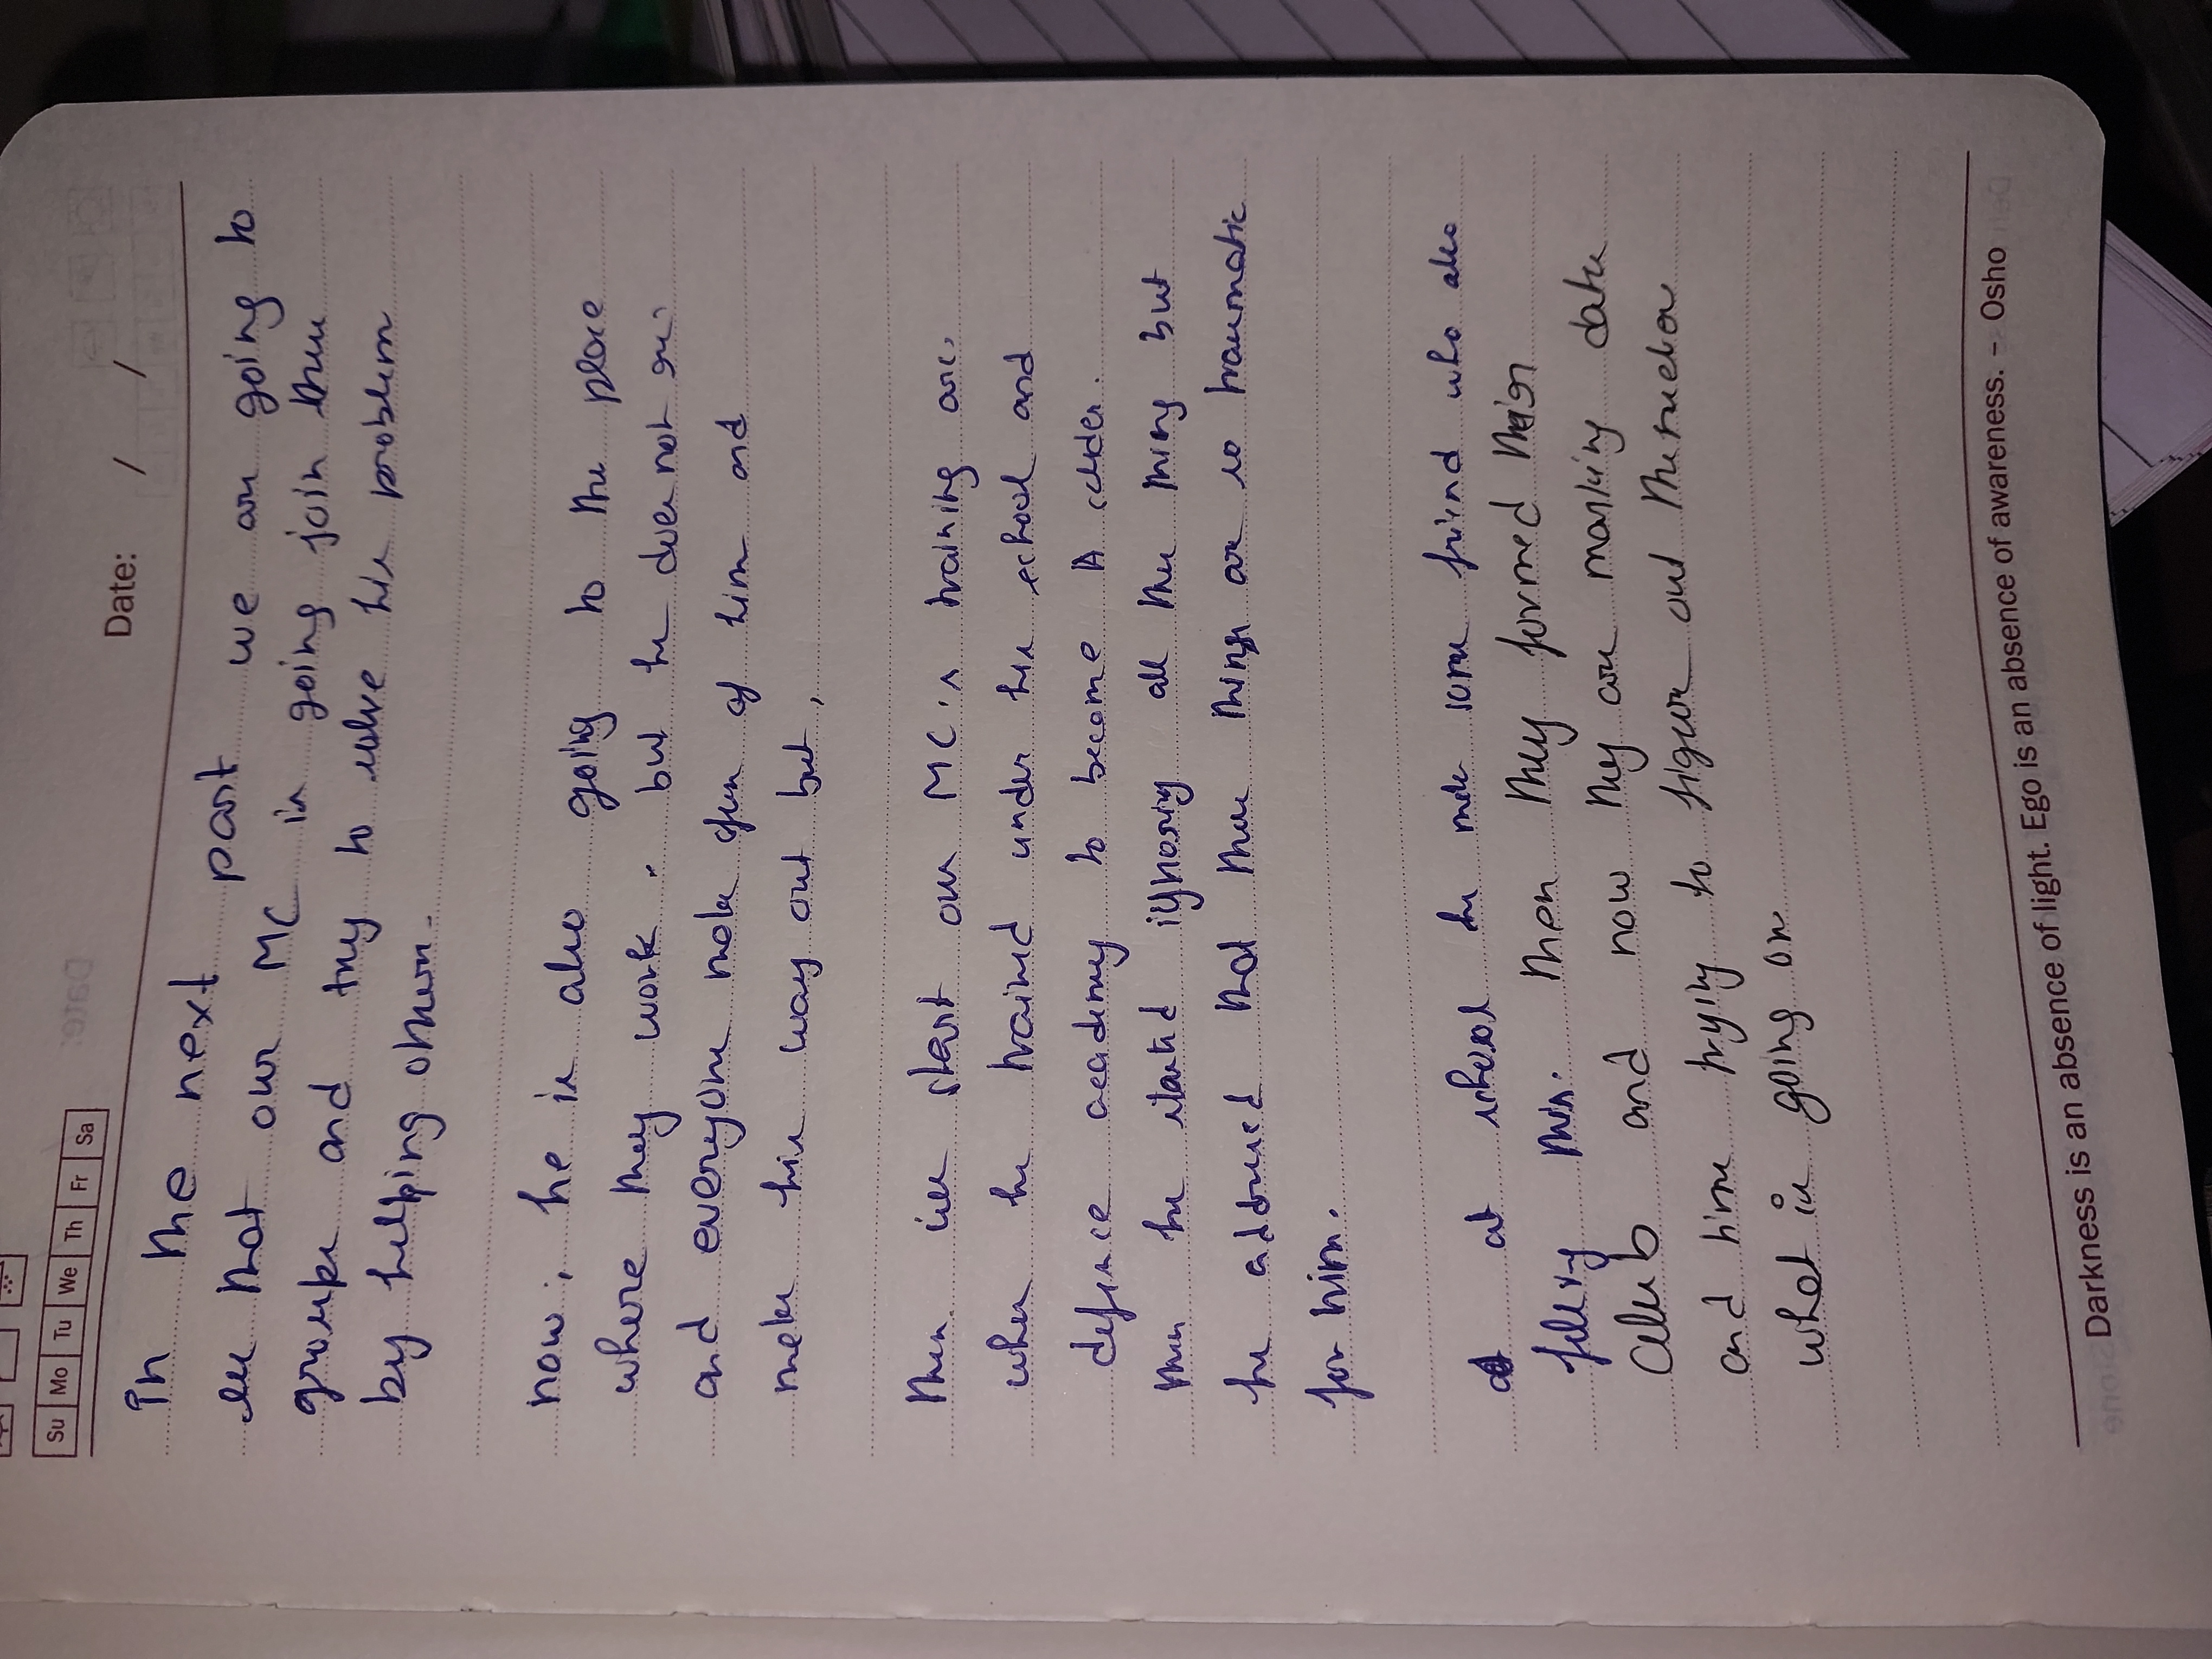 Su Mo Tu We Th Fr Sa
Date: / /
in the next part we are going to
see that our MC is going join these
groups and try to solve his problem
by helping others.
now, he is also going to the place
where they work. but he does not
and everyone make fun of him and
make his way out but,
then we start our MC's training arc,
when he trained under his school and
defence academy to become A
then he started ignoring all the thing but
he addressed that these things are so traumatic
for him.
at school he make some friend who also
this. then they formed their
club and now they are marking date
and time trying to figure out
what is going on
Darkness is an absence of light. Ego is an absence of awareness. – Osho